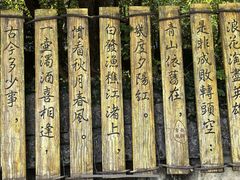 浪花淘盡英雄
是非成敗轉頭空：
青山依舊在，
幾度夕陽紅。
白發漁樵江渚上，
慣看秋月春風。
一壺濁酒喜相逢，
古今多少事，